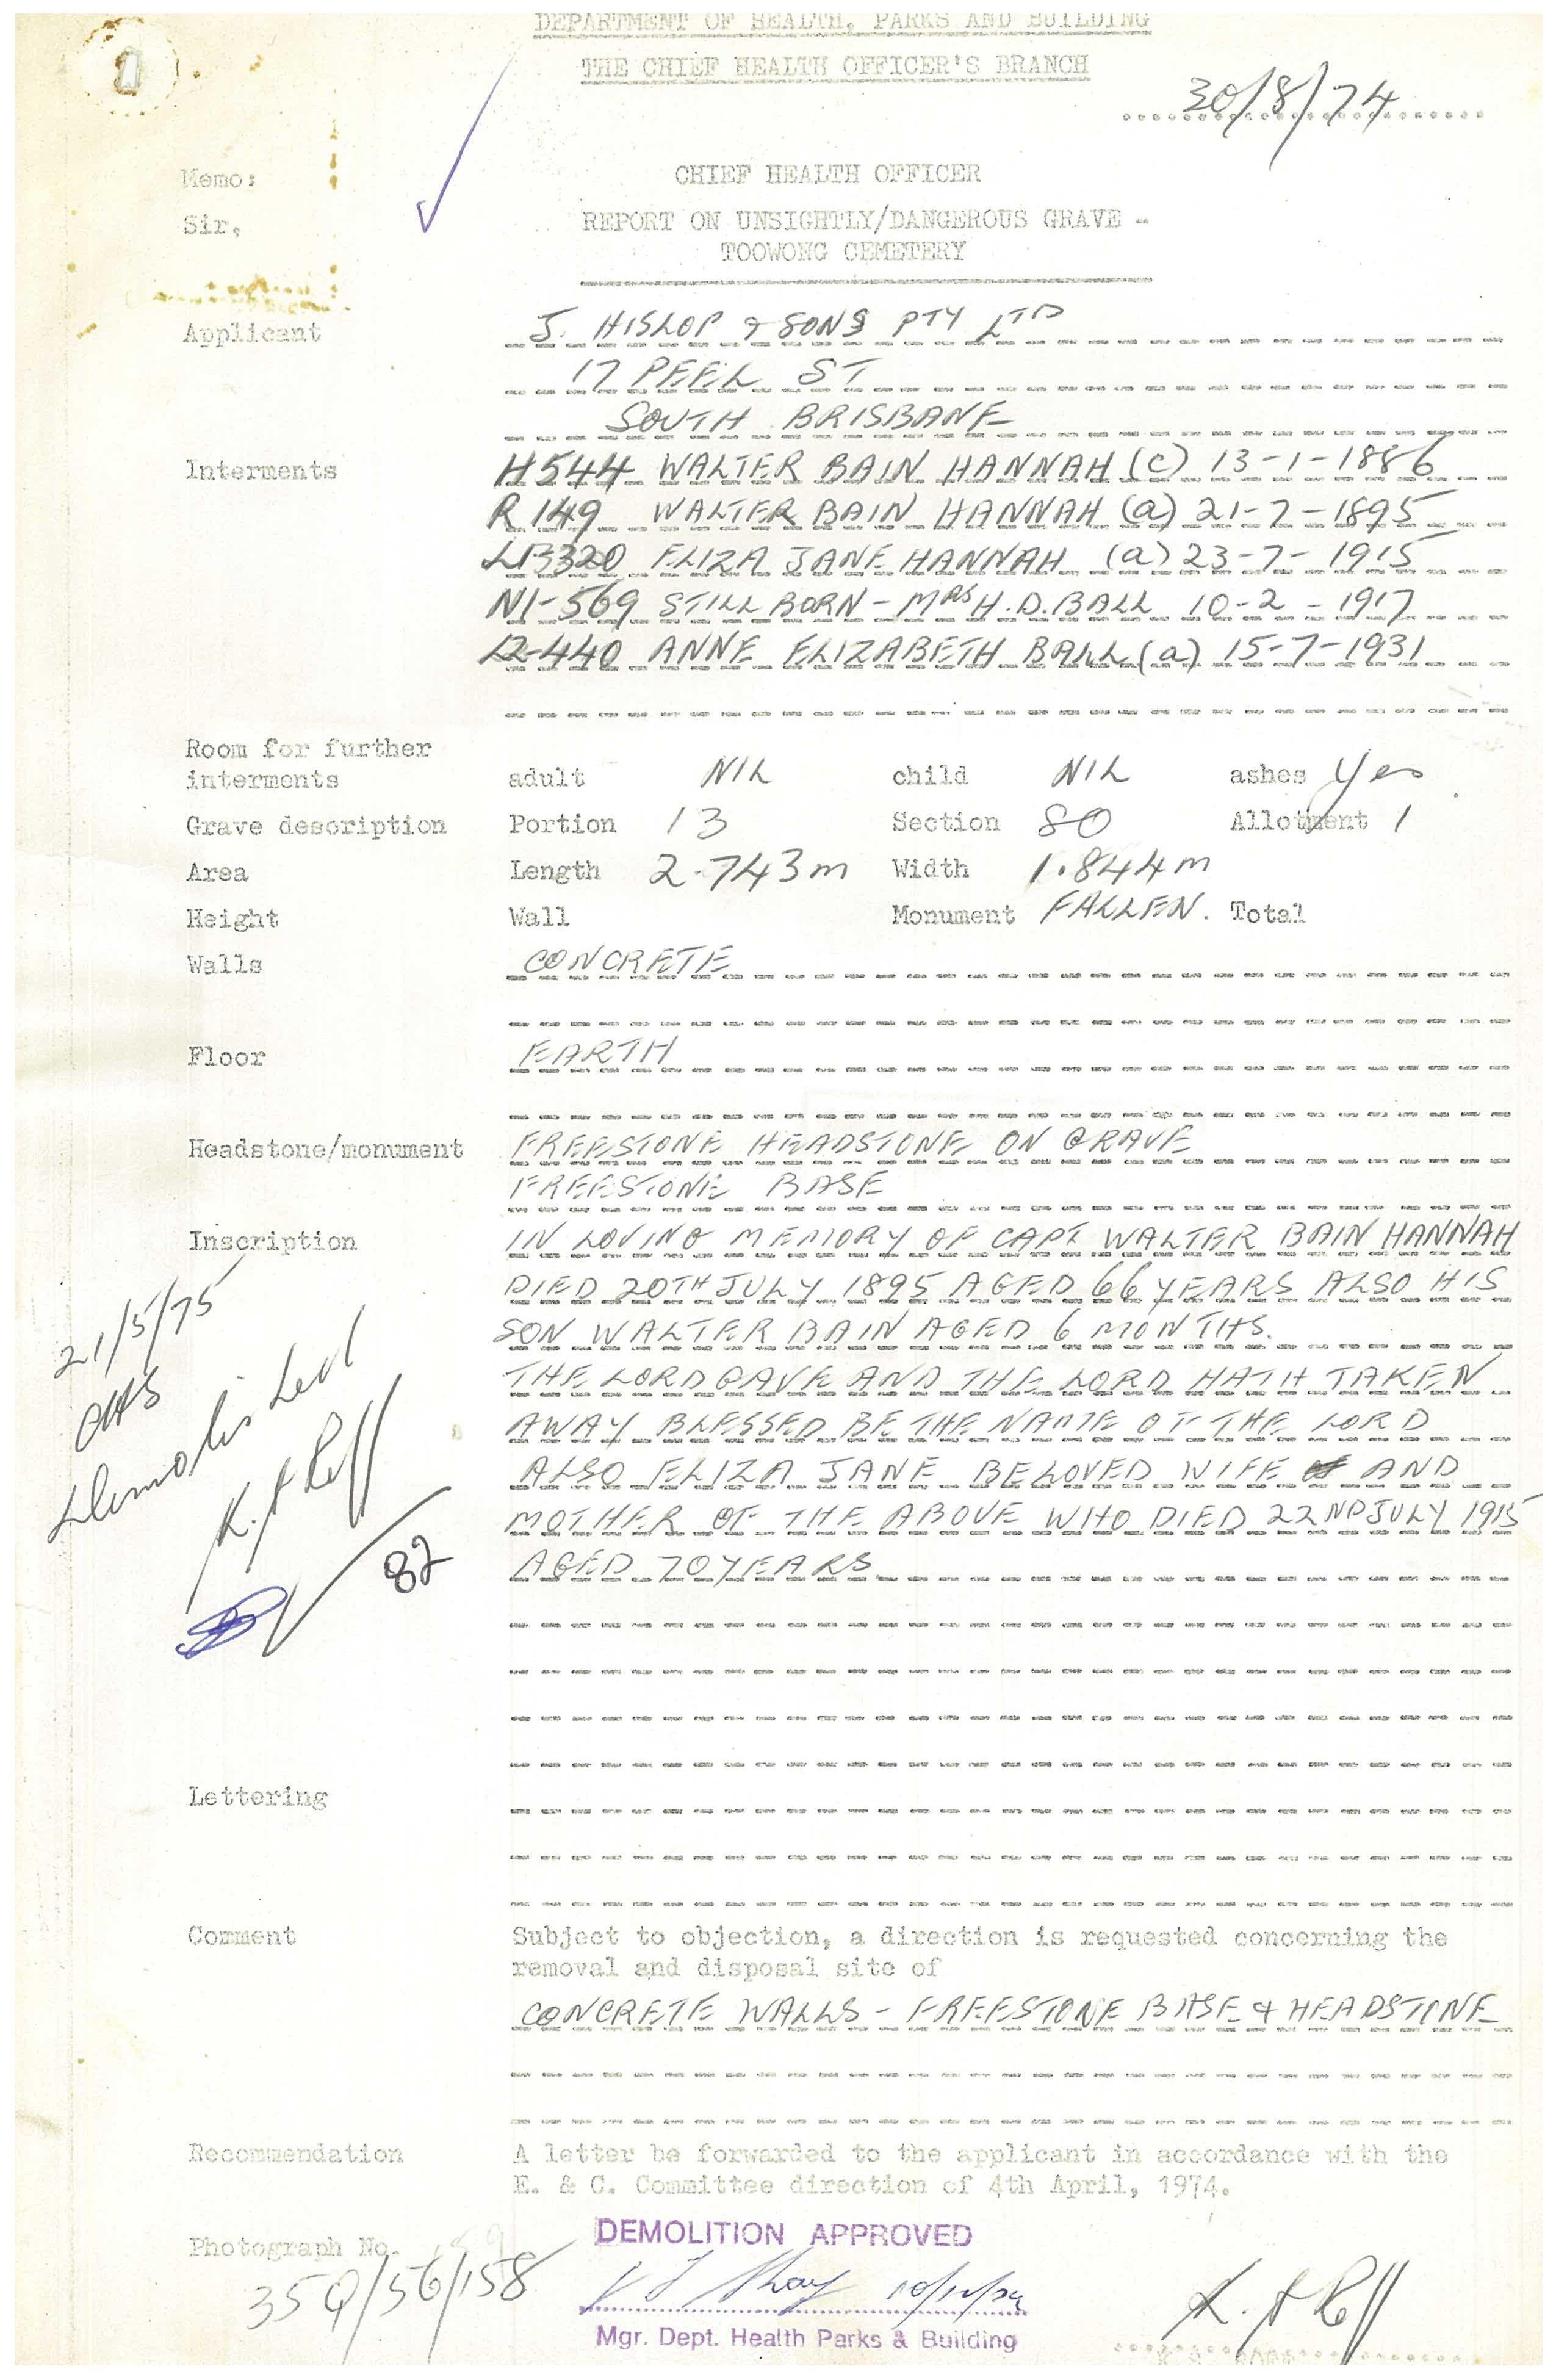 DEPARTMENT OF HEALTH, PARKS AND BUILDING
THE CHIEF HEALTH OFFICER'S BRANCH
30/8/74
Memo:
CHIEF HEALTH OFFICER
Sir,
REPORT ON UNSIGHTLY/DANGEROUS GRAVE -
TOOWONG CEMETERY
Applicant J. HISLOP & SONS PTY LTD
17 PEEL ST
SOUTH BRISBANE
Interments H544 WALTER BAIN HANNAH (C) 13-1-1886
R149 WALTER BAIN HANNAH (a) 21-7-1895
LB320 ELIZA JANE HANNAH (a) 23-7-1915
N1-569 STILL BORN - MRS H.D. BALL 10-2-1917
440 ANNE ELIZABETH BALL (a) 15-7-1931
Room for further
interments adult NIL child NIL ashes Yes
Grave description Portion 13 Section 80 Allotment 1
Area Length 2.743m Width 1.844m
Height Wall Monument FALLEN. Total
Walls CONCRETE
Floor EARTH
Headstone/monument FREESTONE HEADSTONE ON GRAVE
FREESTONE BASE
Inscription IN LOVING MEMORY OF CAPT WALTER BAIN HANNAH
DIED 20TH JULY 1895 AGED 66 YEARS ALSO HIS
SON WALTER BAIN AGED 6 MONTHS.
THE LORD GAVE AND THE LORD HATH TAKEN
AWAY BLESSED BE THE NAME OF THE LORD
ALSO ELIZA JANE BELOVED WIFE AND
MOTHER OF THE ABOVE WHO DIED 22ND JULY 1915
AGED 70 YEARS
21/5/75
82
Lettering
Comment Subject to objection, a direction is requested concerning the
removal and disposal site of
CONCRETE WALLS - FREESTONE BASE & HEADSTONE
Recommendation A letter be forwarded to the applicant in accordance with the
E. & C. Committee direction of 4th April, 1974.
DEMOLITION APPROVED
Photograph No.
35Q/56/158
Mgr. Dept. Health Parks & Building